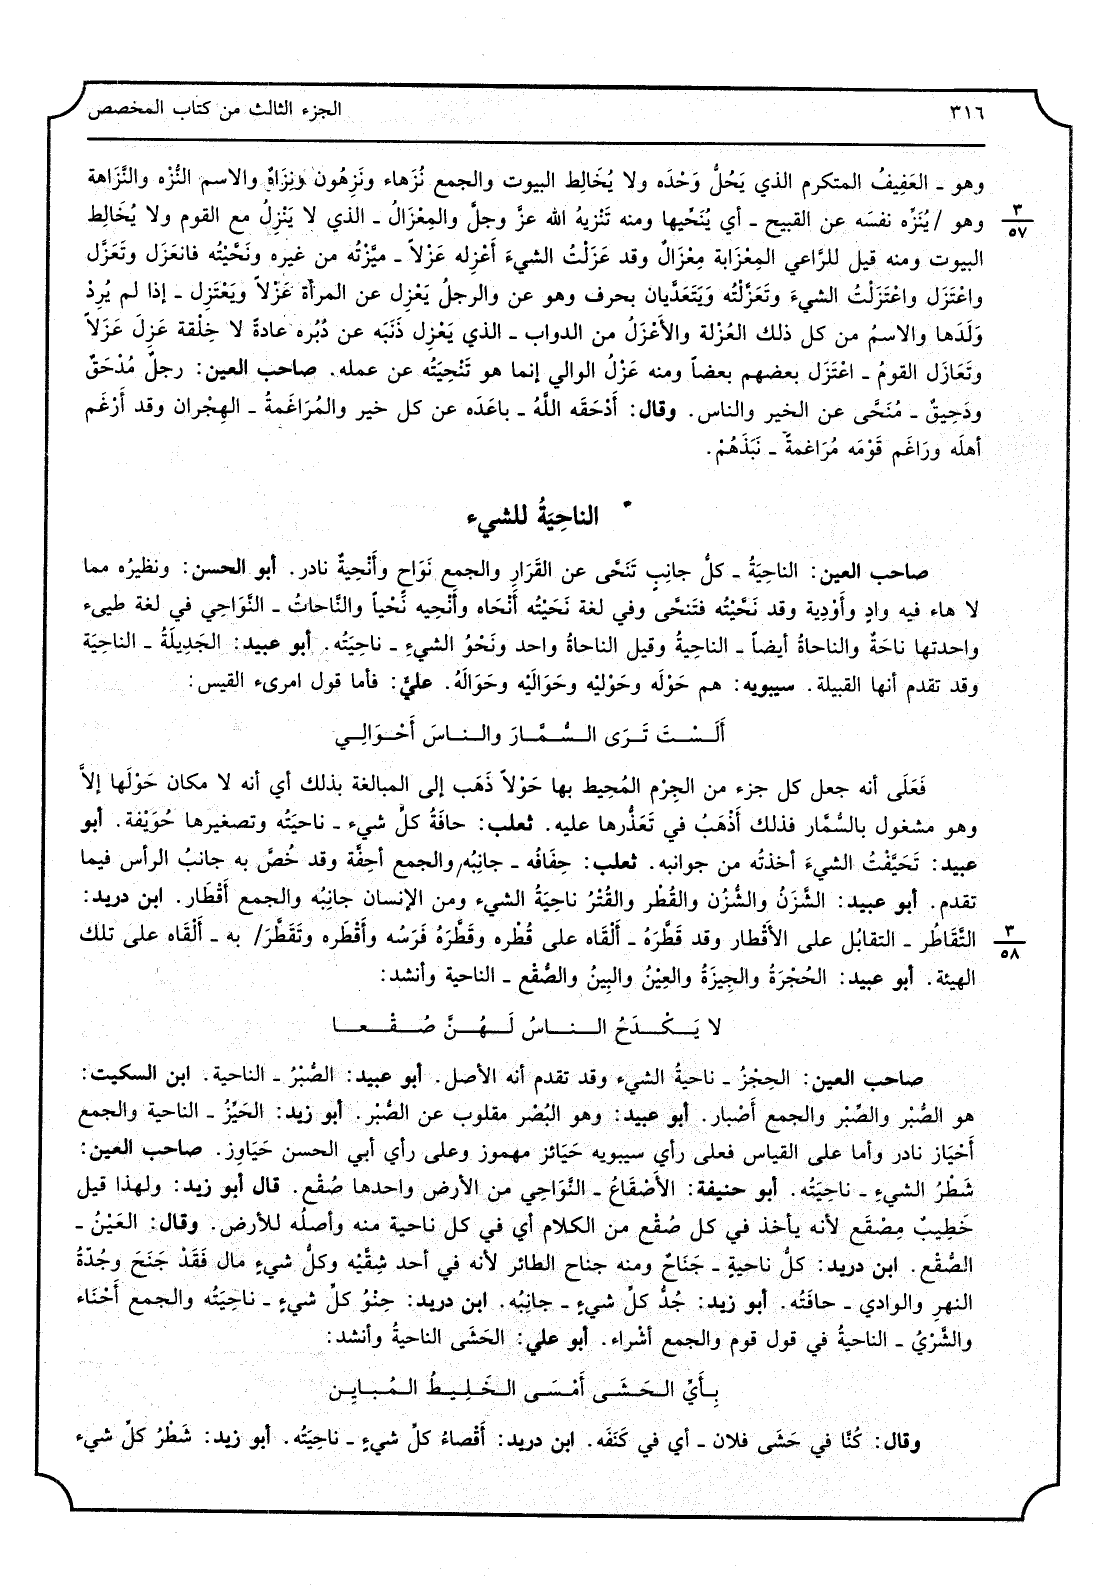 ٣١٦
الجزء الثالث من كتاب المخصص
وهو ـ العَفِيفُ المتكرم الذي يَحُلُّ وَحْدَه ولا يُخَالِط البيوت والجمع نُزَهاء ونَزِهُون ونِزَاهٌ والاسم النُّزْه والنَّزَاهة
٣
٥٧
وهو /يُنَزِّه نفسَه عن القبيح ـ أي يُنَحِّيها ومنه تَنْزِيهُ الله عزَّ وجلَّ والمِعْزَالُ ـ الذي لا يَنْزِلُ مع القوم ولا يُخَالِط
البيوت ومنه قيل للرَّاعي المِعْزَابة مِعْزَالٌ وقد عَزَلْتُ الشيءَ أَعْزِله عَزْلاً ـ ميَّزْتُه من غيره ونَحَّيْتُه فانعَزَل وتَعَزَّل
واعْتَزَل واعْتَزَلْتُ الشيءَ وتَعَزَّلْتُه وَيَتَعَدَّيان بحرف وهو عن والرجلُ يَعْزِل عن المرأة عَزْلاً ويَعْتَزِل ـ إذا لم يُرِدْ
وَلَدَها والاسمُ من كل ذلك العُزْلة والأَعْزَلُ من الدواب ـ الذي يَعْزِل ذَنَبَه عن دُبُره عادةً لا خِلْقة عَزِلَ عَزَلاً
وتَعَازَل القومُ ـ اعْتَزَل بعضهم بعضاً ومنه عَزْلُ الوالي إنما هو تَنْحِيَتُه عن عمله. صاحب العين: رجلٌ مُدْحَقٌ
ودَحِيقٌ ـ مُنَحَّى عن الخير والناس. وقال: أَدْحَقَه اللَّهُ ـ باعَدَه عن كل خير والمُرَاغَمةُ ـ الهِجْران وقد أَرْغَم
أهلَه ورَاغَم قَوْمَه مُرَاغمةً ـ نَبَذَهُمْ.
الناحِيَةُ للشيء
صاحب العين: الناحِيَةُ ـ كلُّ جانِبٍ تَنَحَّى عن القَرَارِ والجمع نَوَاحٍ وأَنْحِيةٌ نادر. أبو الحسن: ونظيرُه مما
لا هاء فيه وادٍ وأَوْدِية وقد نَحَّيْتُه فتَنحَّى وفي لغة نَحَيْتُه أَنْحَاه وأَنْحِيه نَحْياً والنَّاحاتُ ـ النَّوَاحِي في لغة طيىء
واحدتها ناحَةٌ والناحاةُ أيضاً ـ الناحِيةُ وقيل الناحاةُ واحد ونَحْوُ الشيءِ ـ ناحِيَتُه. أبو عبيد: الجَدِيلَةُ ـ الناحِيَة
وقد تقدم أنها القبيلة. سيبويه: هم حَوْلَه وحَوْليْه وحَوَالَيْه وحَوَالَهُ. عليّ: فأما قول امرىء القيس:
أَلَسْتَ تَرَى السُّمَّارَ والناسَ أَحْوَالِي
فَعَلَى أنه جعل كل جزء من الجِرْم المُحِيط بها حَوْلاً ذَهَب إلى المبالغة بذلك أي أنه لا مكان حَوْلَها إلاَّ
وهو مشغول بالسُّمَّار فذلك أَذْهَبُ في تَعَذُّرها عليه. ثعلب: حافَةُ كلِّ شيء ـ ناحيَتُه وتصغيرها حُوَيْفة. أبو
عبيد: تَحَيَّفْتُ الشيءَ أخذتُه من جوانبه. ثعلب: حِفَافُه ـ جانِبُه والجمع أحِفَّة وقد خُصَّ به جانبُ الرأس فيما
تقدم. أبو عبيد: الشَّزَنُ والشُّزُن والقُطْر والقُتْرُ ناحِيَةُ الشيء ومن الإنسان جانِبُه والجمع أَقْطَار. ابن دريد:
٣
٥٨
التَّقَاطُر ـ التقابُل على الأَقْطار وقد قَطَّرَهُ ـ أَلْقَاه على قُطْره وقَطَّرَهُ فَرَسُه وأَقْطَره وتَقَطَّرَ/ به ـ أَلْقَاه على تلك
الهيئة. أبو عبيد: الحُجْرَةُ والجِيزَةُ والعِيْنُ والبِينُ والصُّقْع ـ الناحية وأنشد:
لا يَكْدَحُ الناسُ لَهُنَّ صُقْعا
صاحب العين: الحِجْزُ ـ ناحيةُ الشيء وقد تقدم أنه الأصل. أبو عبيد: الصُّبْرُ ـ الناحية. ابن السكيت:
هو الصُّبْر والصِّبْر والجمع أَصْبار. أبو عبيد: وهو البُصْر مقلوب عن الصُّبْر. أبو زيد: الحَيِّزُ ـ الناحية والجمع
أَحْيَاز نادر وأما على القياس فعلى رأي سيبويه حَيَائز مهموز وعلى رأي أبي الحسن حَيَاوِز. صاحب العين:
شَطْرُ الشيءِ ـ ناحِيَتُه. أبو حنيفة: الأَصْقَاعُ ـ النَّوَاحِي من الأرض واحدها صُقْع. قال أبو زيد: ولهذا قيل
خَطِيبٌ مِصْقَع لأنه يأخذ في كل صُقْع من الكلام أي في كل ناحية منه وأصلُه للأرض. وقال: العَيْنُ ـ
الصُّقْع. ابن دريد: كلُّ ناحيةٍ ـ جَنَاحٌ ومنه جناح الطائر لأنه في أحد شِقَّيْه وكلُّ شيءٍ مال فَقَدْ جَنَحَ وجُدّةُ
النهرِ والوادي ـ حافَتُه. أبو زيد: جُدُّ كلِّ شيءٍ ـ جانِبُه. ابن دريد: حِنْوُ كلِّ شيءٍ ـ ناحِيَتُه والجمع أَحْنَاء
والشَّرْيُ ـ الناحيةُ في قول قوم والجمع أشْراء. أبو علي: الحَشَى الناحيةُ وأنشد:
بِأَيِّ الحَشَى أَمْسَى الخَلِيطُ المُبايِن
وقال: كُنَّا في حَشَى فلان ـ أي في كَنَفَه. ابن دريد: أَقْصاءُ كلِّ شيءٍ ـ ناحِيَتُه. أبو زيد: شَطْرُ كلِّ شيء